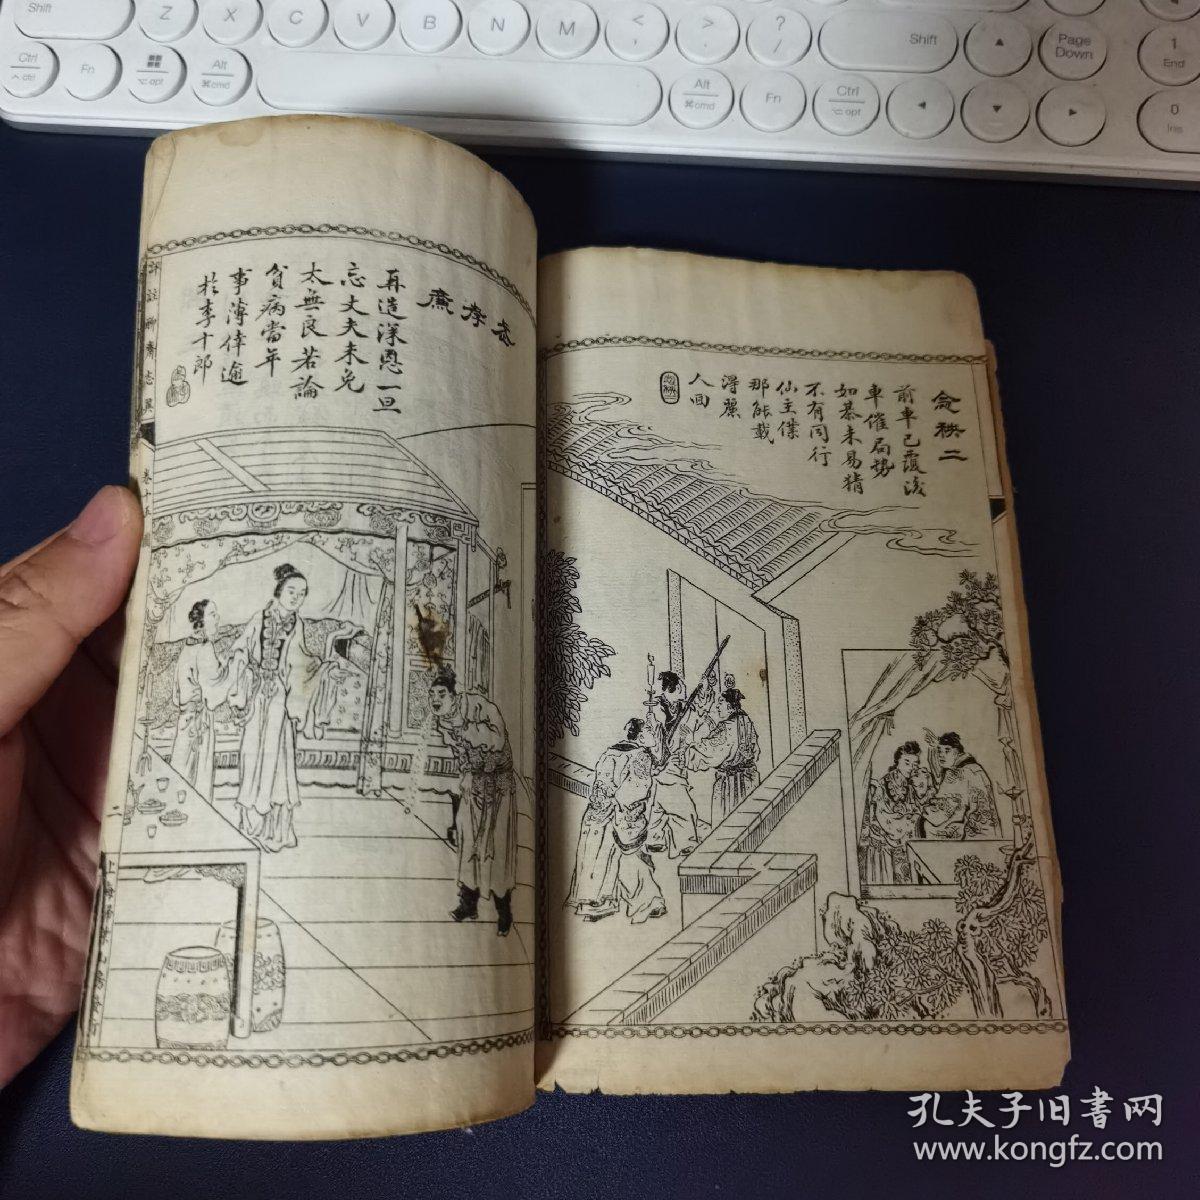 Shift
Z
X
C
V
B
N
M
<
,
>
.
?
/
Shift
▲
Page
Down
1
End
Ctrl
^ ctrl
Fn
⌥ opt
Alt
⌘ cmd
Alt
⌘ cmd
Fn
Ctrl
⌥ opt
◄
▼
►
0
Ins
念秧二
前車已覆後
車催局勢
如棊未易猜
不有同行
仙主僕
那能載
淂麗
人回
武孝廉
再造深恩一旦
忘丈夫未免
太無良若論
貧病當年
事薄倖逾
於李十郎
評註聊齋志異
卷十五
二
孔夫子旧書网
www.kongfz.com